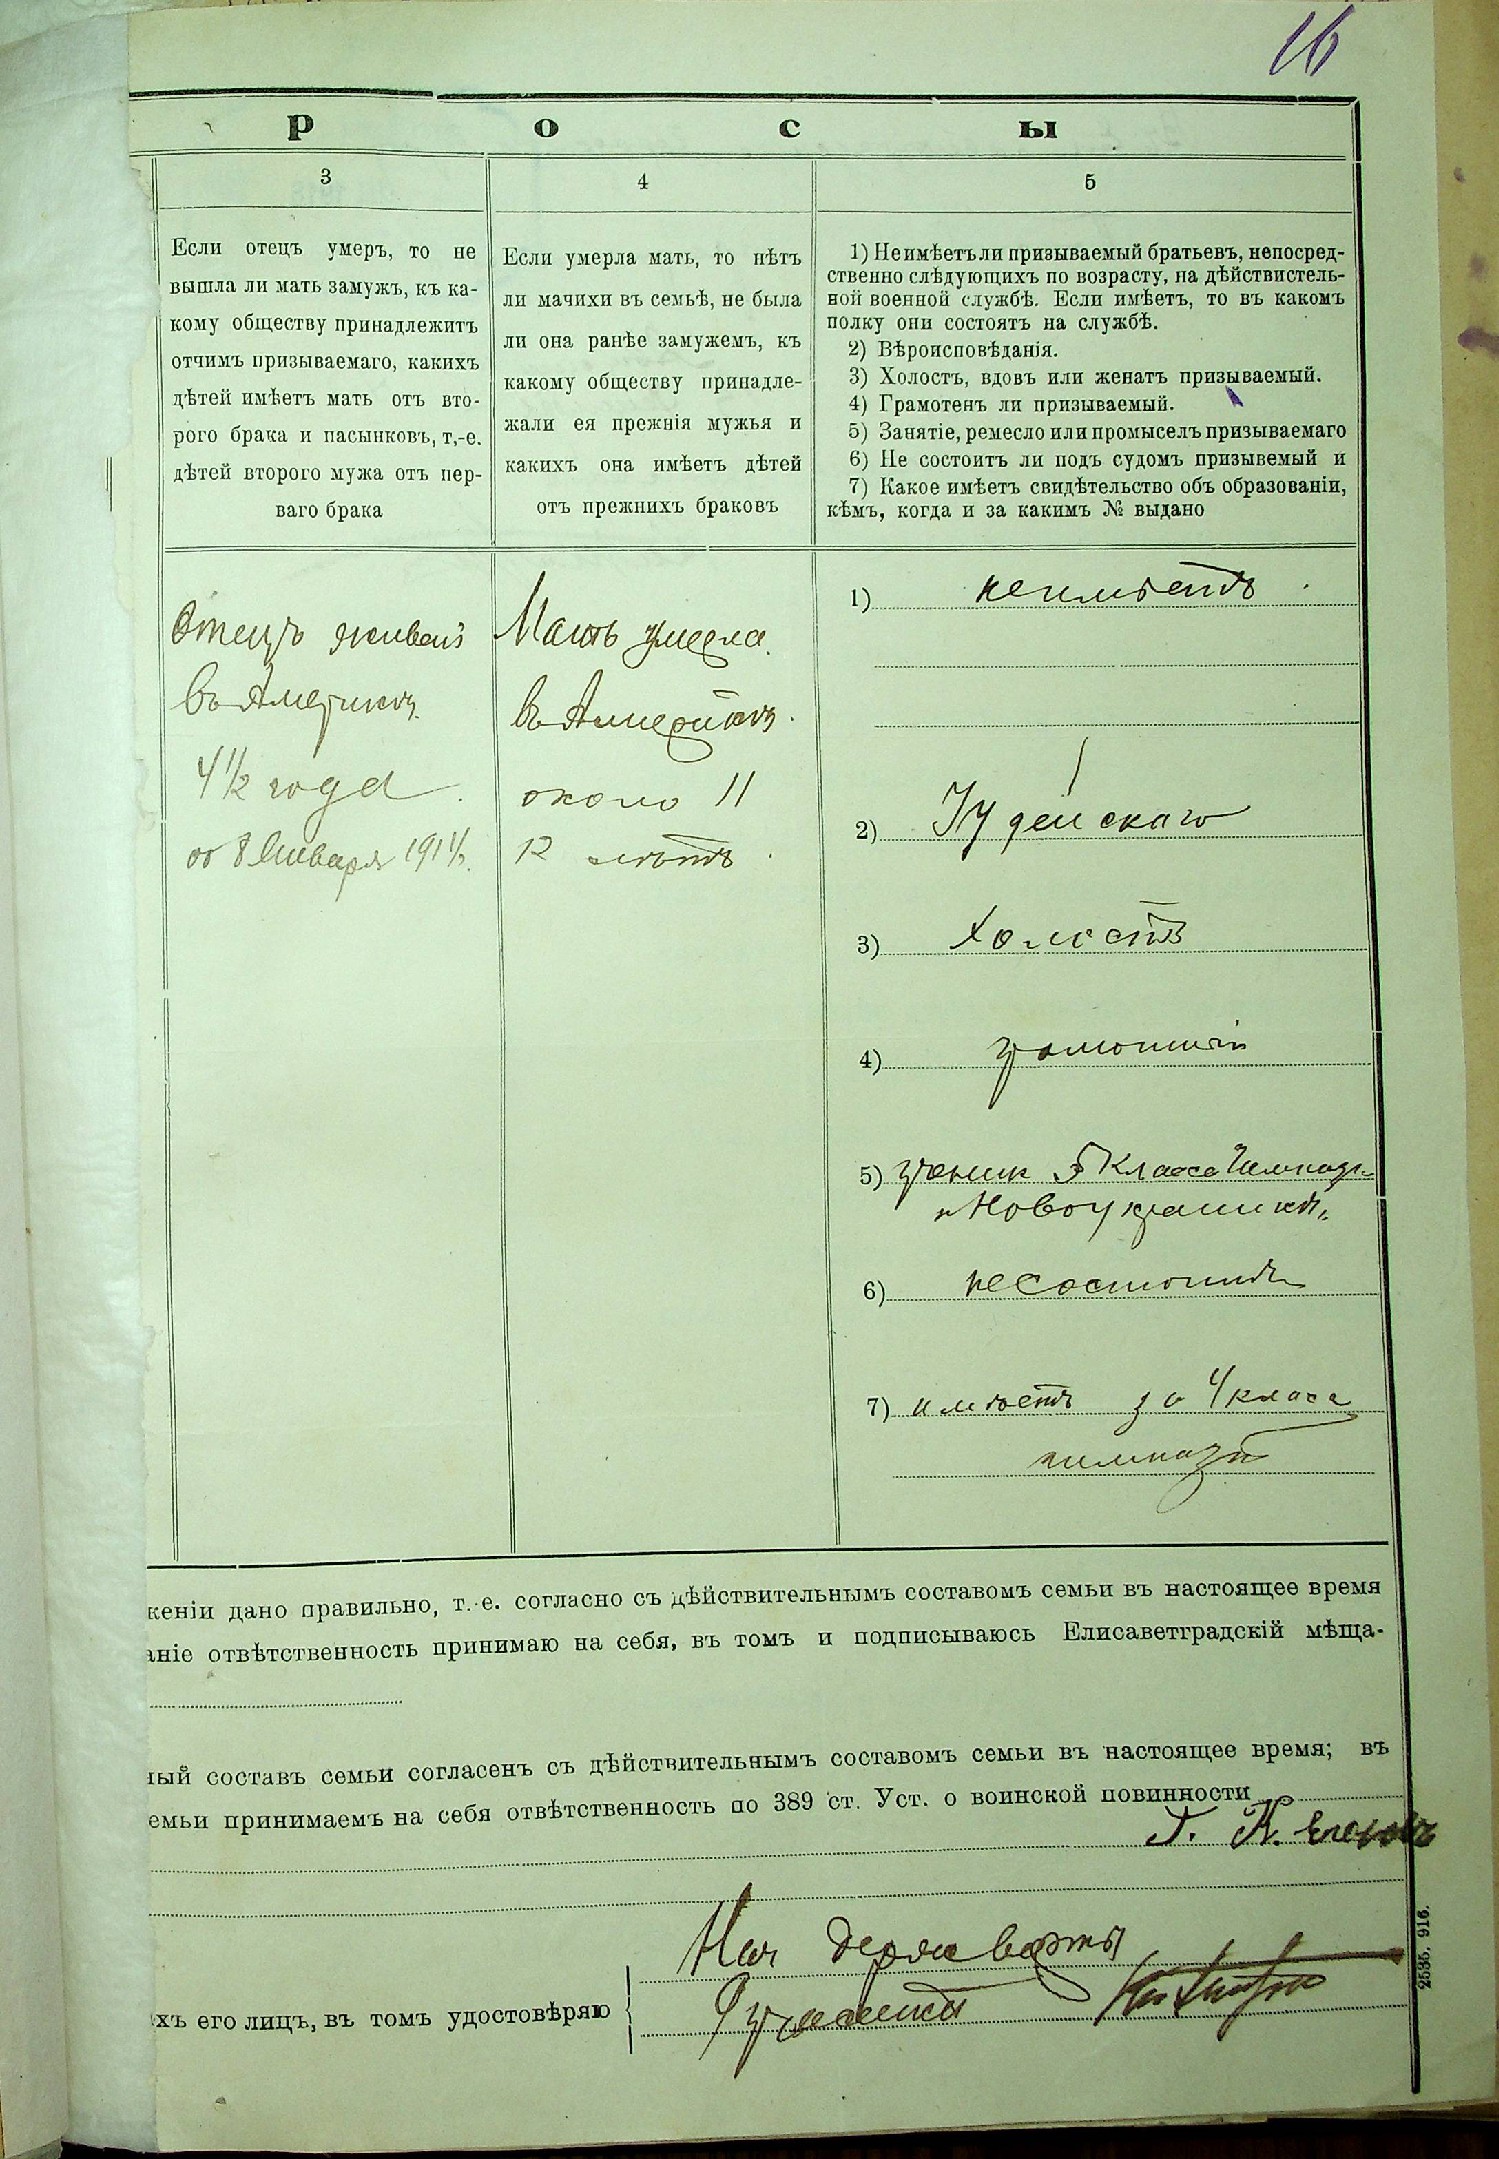 16
р о с ы
3
Если отецъ умеръ, то не
вышла ли мать замужъ, къ ка-
кому обществу принадлежитъ
отчимъ призываемаго, какихъ
дѣтей имѣетъ мать отъ вто-
рого брака и пасынковъ, т,-е.
дѣтей второго мужа отъ пер-
ваго брака
4
Если умерла мать, то нѣтъ
ли мачихи въ семьѣ, не была
ли она ранѣе замужемъ, къ
какому обществу принадле-
жали ея прежнія мужья и
какихъ она имѣетъ дѣтей
отъ прежнихъ браковъ
5
1) Не имѣетъ ли призываемый братьевъ, непосред-
ственно слѣдующихъ по возрасту, на дѣйствистель-
ной военной службѣ. Если имѣетъ, то въ какомъ
полку они состоятъ на службѣ.
2) Вѣроисповѣданія.
3) Холостъ, вдовъ или женатъ призываемый.
4) Грамотенъ ли призываемый.
5) Занятіе, ремесло или промыселъ призываемаго
6) Не состоитъ ли подъ судомъ призывемый и
7) Какое имѣетъ свидѣтельство объ образованіи,
кѣмъ, когда и за какимъ № выдано
Отецъ
въ Америкѣ
4 1/2 года
8 Января
Мать умерла
въ Америкѣ.
около 11
12 лѣтъ.
1) неимѣетъ
2) Іудейскаго
3) холостъ
4) грамотный
5) ученик 5 класса
6) несостоитъ
7) имѣетъ за 4 класа
гимназіи
женіи дано правильно, т.-е. согласно съ дѣйствительнымъ составомъ семьи въ настоящее время
аніе отвѣтственность принимаю на себя, въ томъ и подписываюсь Елисаветградскій мѣща-
ный составъ семьи согласенъ съ дѣйствительнымъ составомъ семьи въ настоящее время; въ
емьи принимаемъ на себя отвѣтственность по 389 ст. Уст. о воинской повинности
Нач Держ варты
хъ его лицъ, въ томъ удостовѣряю
2535. 916.